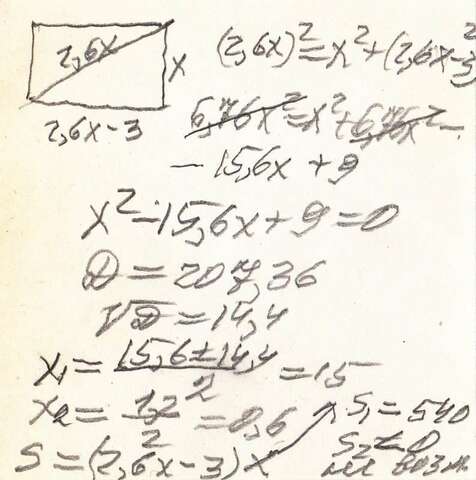 2,6x
x
2,6x-3
(2,6x)²=x²+(2,6x-3)²
6,76x²=x²+6,76x²-
-15,6x+9
x²-15,6x+9=0
D=207,36
√D=14,4
x₁=(15,6±14,4)/2=15
x₂=1,2/2=0,6
S=(2,6x-3)x
S₁=540
S₂<0
не возм.